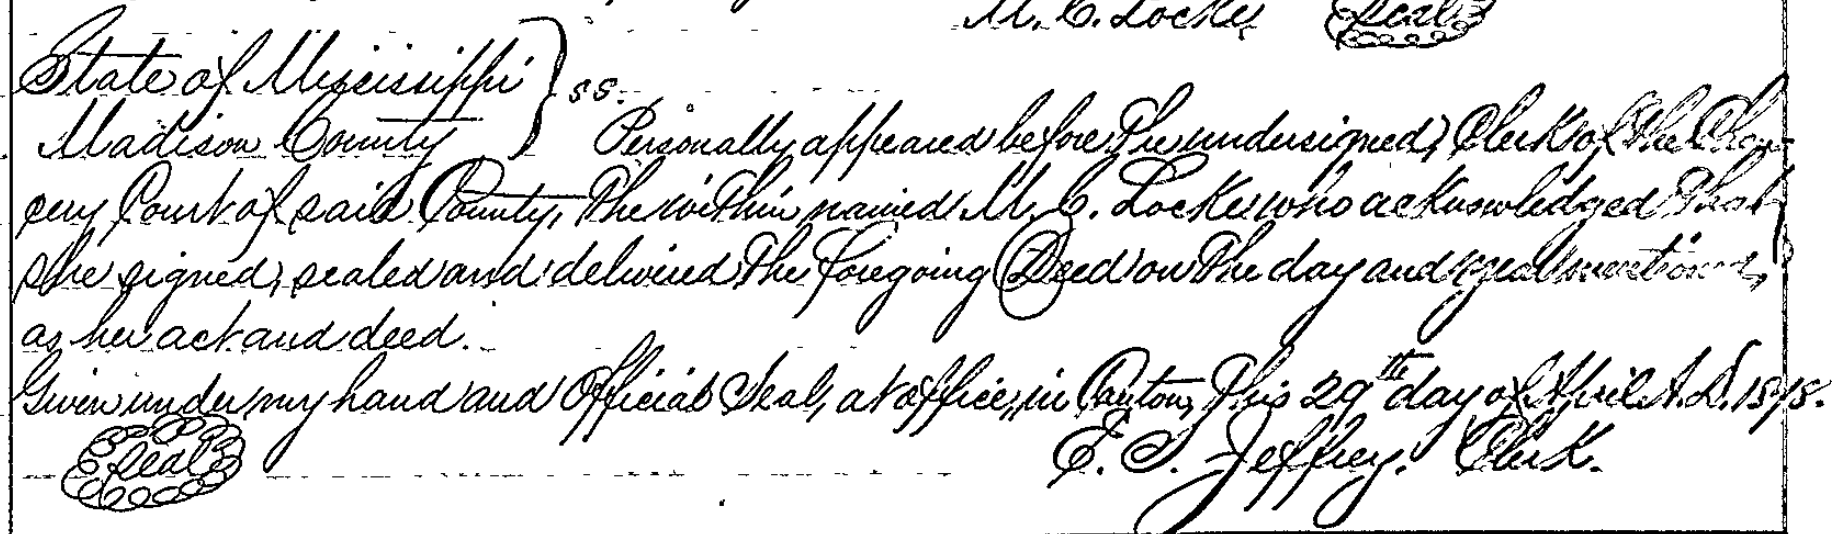 M. C. Locke Seal
State of Mississippi } ss.
Madison County } Personally appeared before the undersigned, Clerk of the Chan-
cery Court of said County, the within named M. C. Locke who acknowledged that
she signed, sealed and delivered the foregoing Deed on the day and year mentioned,
as her act and deed.
Given under my hand and Official Seal, at office, in Canton, this 29th day of April A.D. 1878.
Seal E. S. Jeffrey. Clerk.